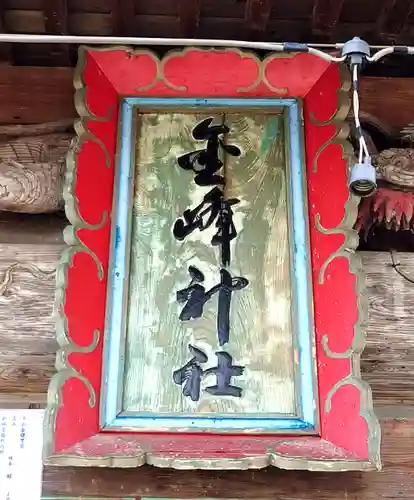 金峰神社